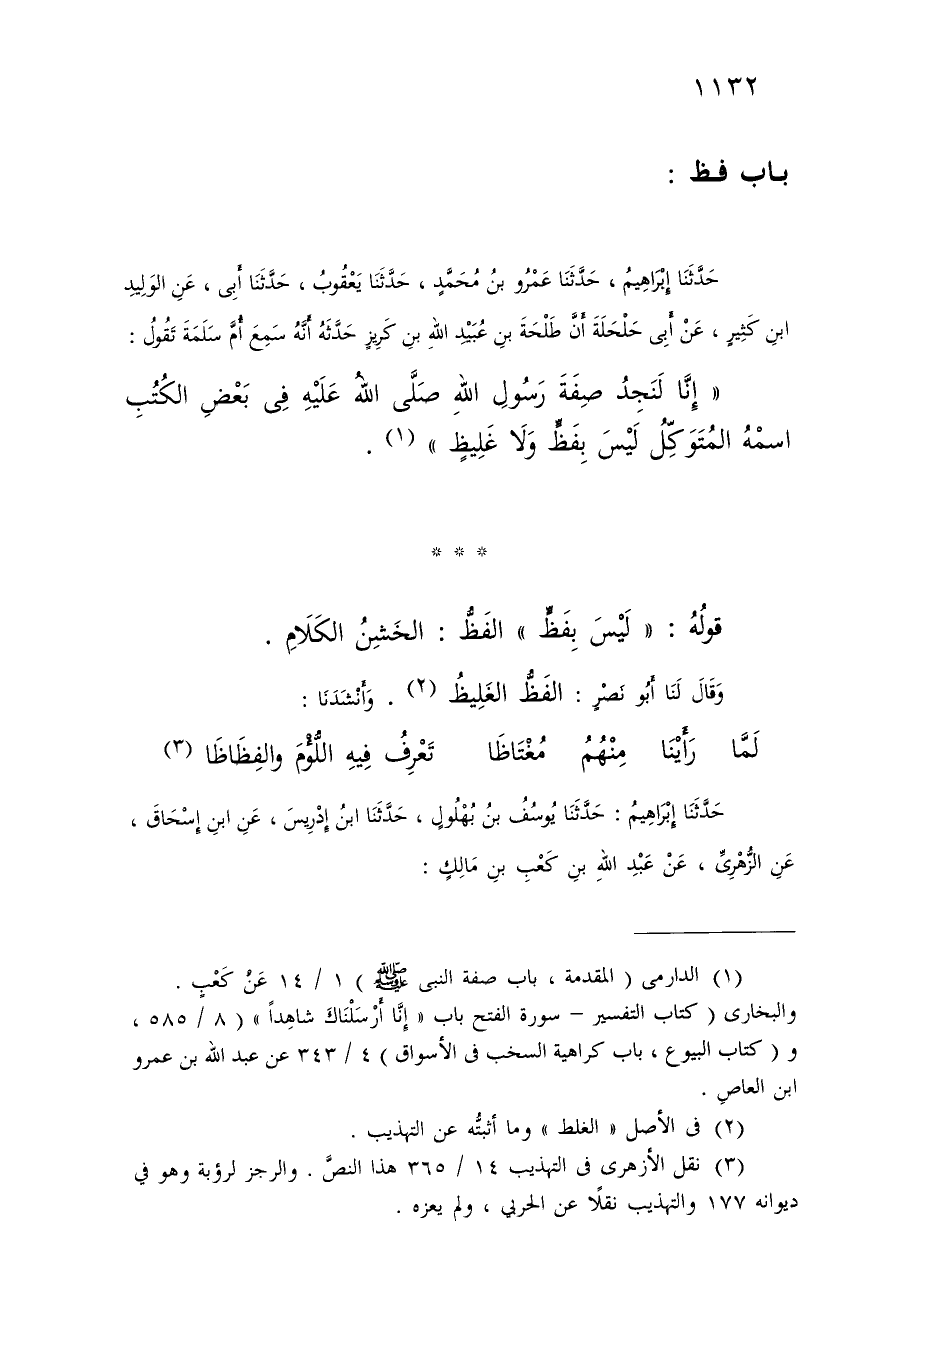 ١١٣٢
باب فظ :
حَدَّثَنَا إِبْرَاهِيمُ ، حَدَّثَنَا عَمْرُو بنُ مُحَمَّدٍ ، حَدَّثَنَا يَعْقُوبُ ، حَدَّثَنَا أَبِى ، عَنِ الوَلِيدِ
ابنِ كَثِيرٍ ، عَنْ أَبِى حَلْحَلَةَ أَنَّ طَلْحَةَ بنِ عُبَيْدِ اللهِ بنِ كَرِيزٍ حَدَّثَهُ أَنَّهُ سَمِعَ أُمَّ سَلَمَةَ تَقُولُ :
« إِنَّا لَنَجِدُ صِفَةَ رَسُولِ اللهِ صَلَّى اللهُ عَلَيْهِ فِى بَعْضِ الكُتُبِ
اسمْهُ المُتَوَكِّلُ لَيْسَ بِفَظٍّ وَلَا غَلِيظٍ » (١) .
* * *
قولُهُ : « لَيْسَ بِفَظٍّ » الفَظُّ : الخَشِنُ الكَلَامِ .
وَقَالَ لَنَا أَبُو نَصْرٍ : الفَظُّ الغَلِيظُ (٢) . وَأَنْشَدَنَا :
لَمَّا رَأَيْنَا مِنْهُمُ مُغْتَاظَا تَعْرِفُ فِيهِ اللُّؤْمَ والفِظَاظَا (٣)
حَدَّثَنَا إِبْرَاهِيمُ : حَدَّثَنَا يُوسُفُ بنُ بُهْلُولٍ ، حَدَّثَنَا ابنُ إِدْرِيسَ ، عَنِ ابنِ إِسْحَاقَ ،
عَنِ الزُّهْرِىِّ ، عَنْ عَبْدِ اللهِ بنِ كَعْبِ بنِ مَالِكٍ :
(١) الدارمى ( المقدمة ، باب صفة النبى ﷺ ) ١ / ١٤ عَنْ كَعْبٍ .
والبخارى ( كتاب التفسير – سورة الفتح باب « إِنَّا أَرْسَلْنَاكَ شاهِداً » ( ٨ / ٥٨٥ ،
و ( كتاب البيوع ، باب كراهية السخب فى الأسواق ) ٤ / ٣٤٣ عن عبد الله بن عمرو
ابن العاصِ .
(٢) فى الأصل « الغلط » وما أثبتُّه عن التهذيب .
(٣) نقل الأزهرى فى التهذيب ١٤ / ٣٦٥ هذا النصَّ . والرجز لرؤبة وهو في
ديوانه ١٧٧ والتهذيب نقلًا عن الحربي ، ولم يعزه .